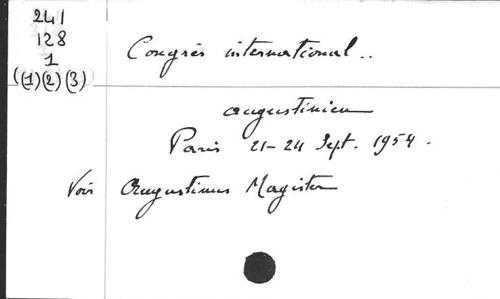 241
128
1
(1)(2)(3)
Congrès international..
augustinien
Paris 21-24 Sept. 1954.
Voir Augustinus Magister